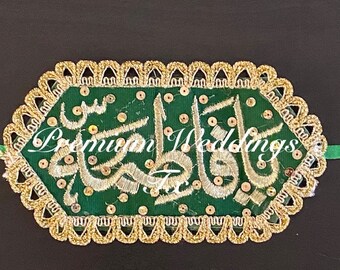 یا فاطمہ س
Premium Weddings
Tx